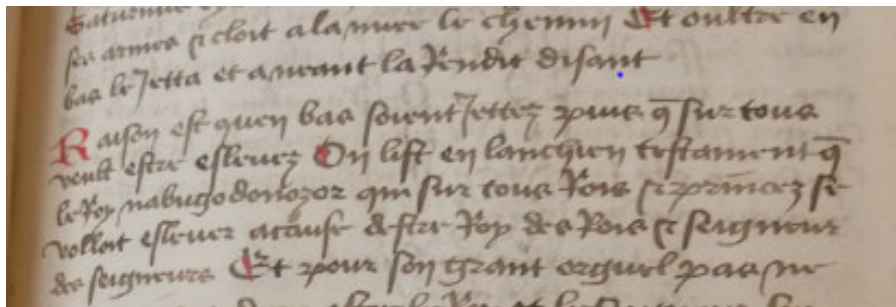 Saturnne
ses armes et cloit a la muer le chemin Et oultre en
bas le Jetta et aneant la Rendit disant
Raison est quen bas soient Jettez puis q̄ sur tous
veult estre eslevez On list en lanchien testament q̄
le Roy nabugodonozor qui sur tous Rois et princez se
volloit eslever a cause destre Roy des Rois et seigneur
des seigneurs Et pour son grant orguel pas ne